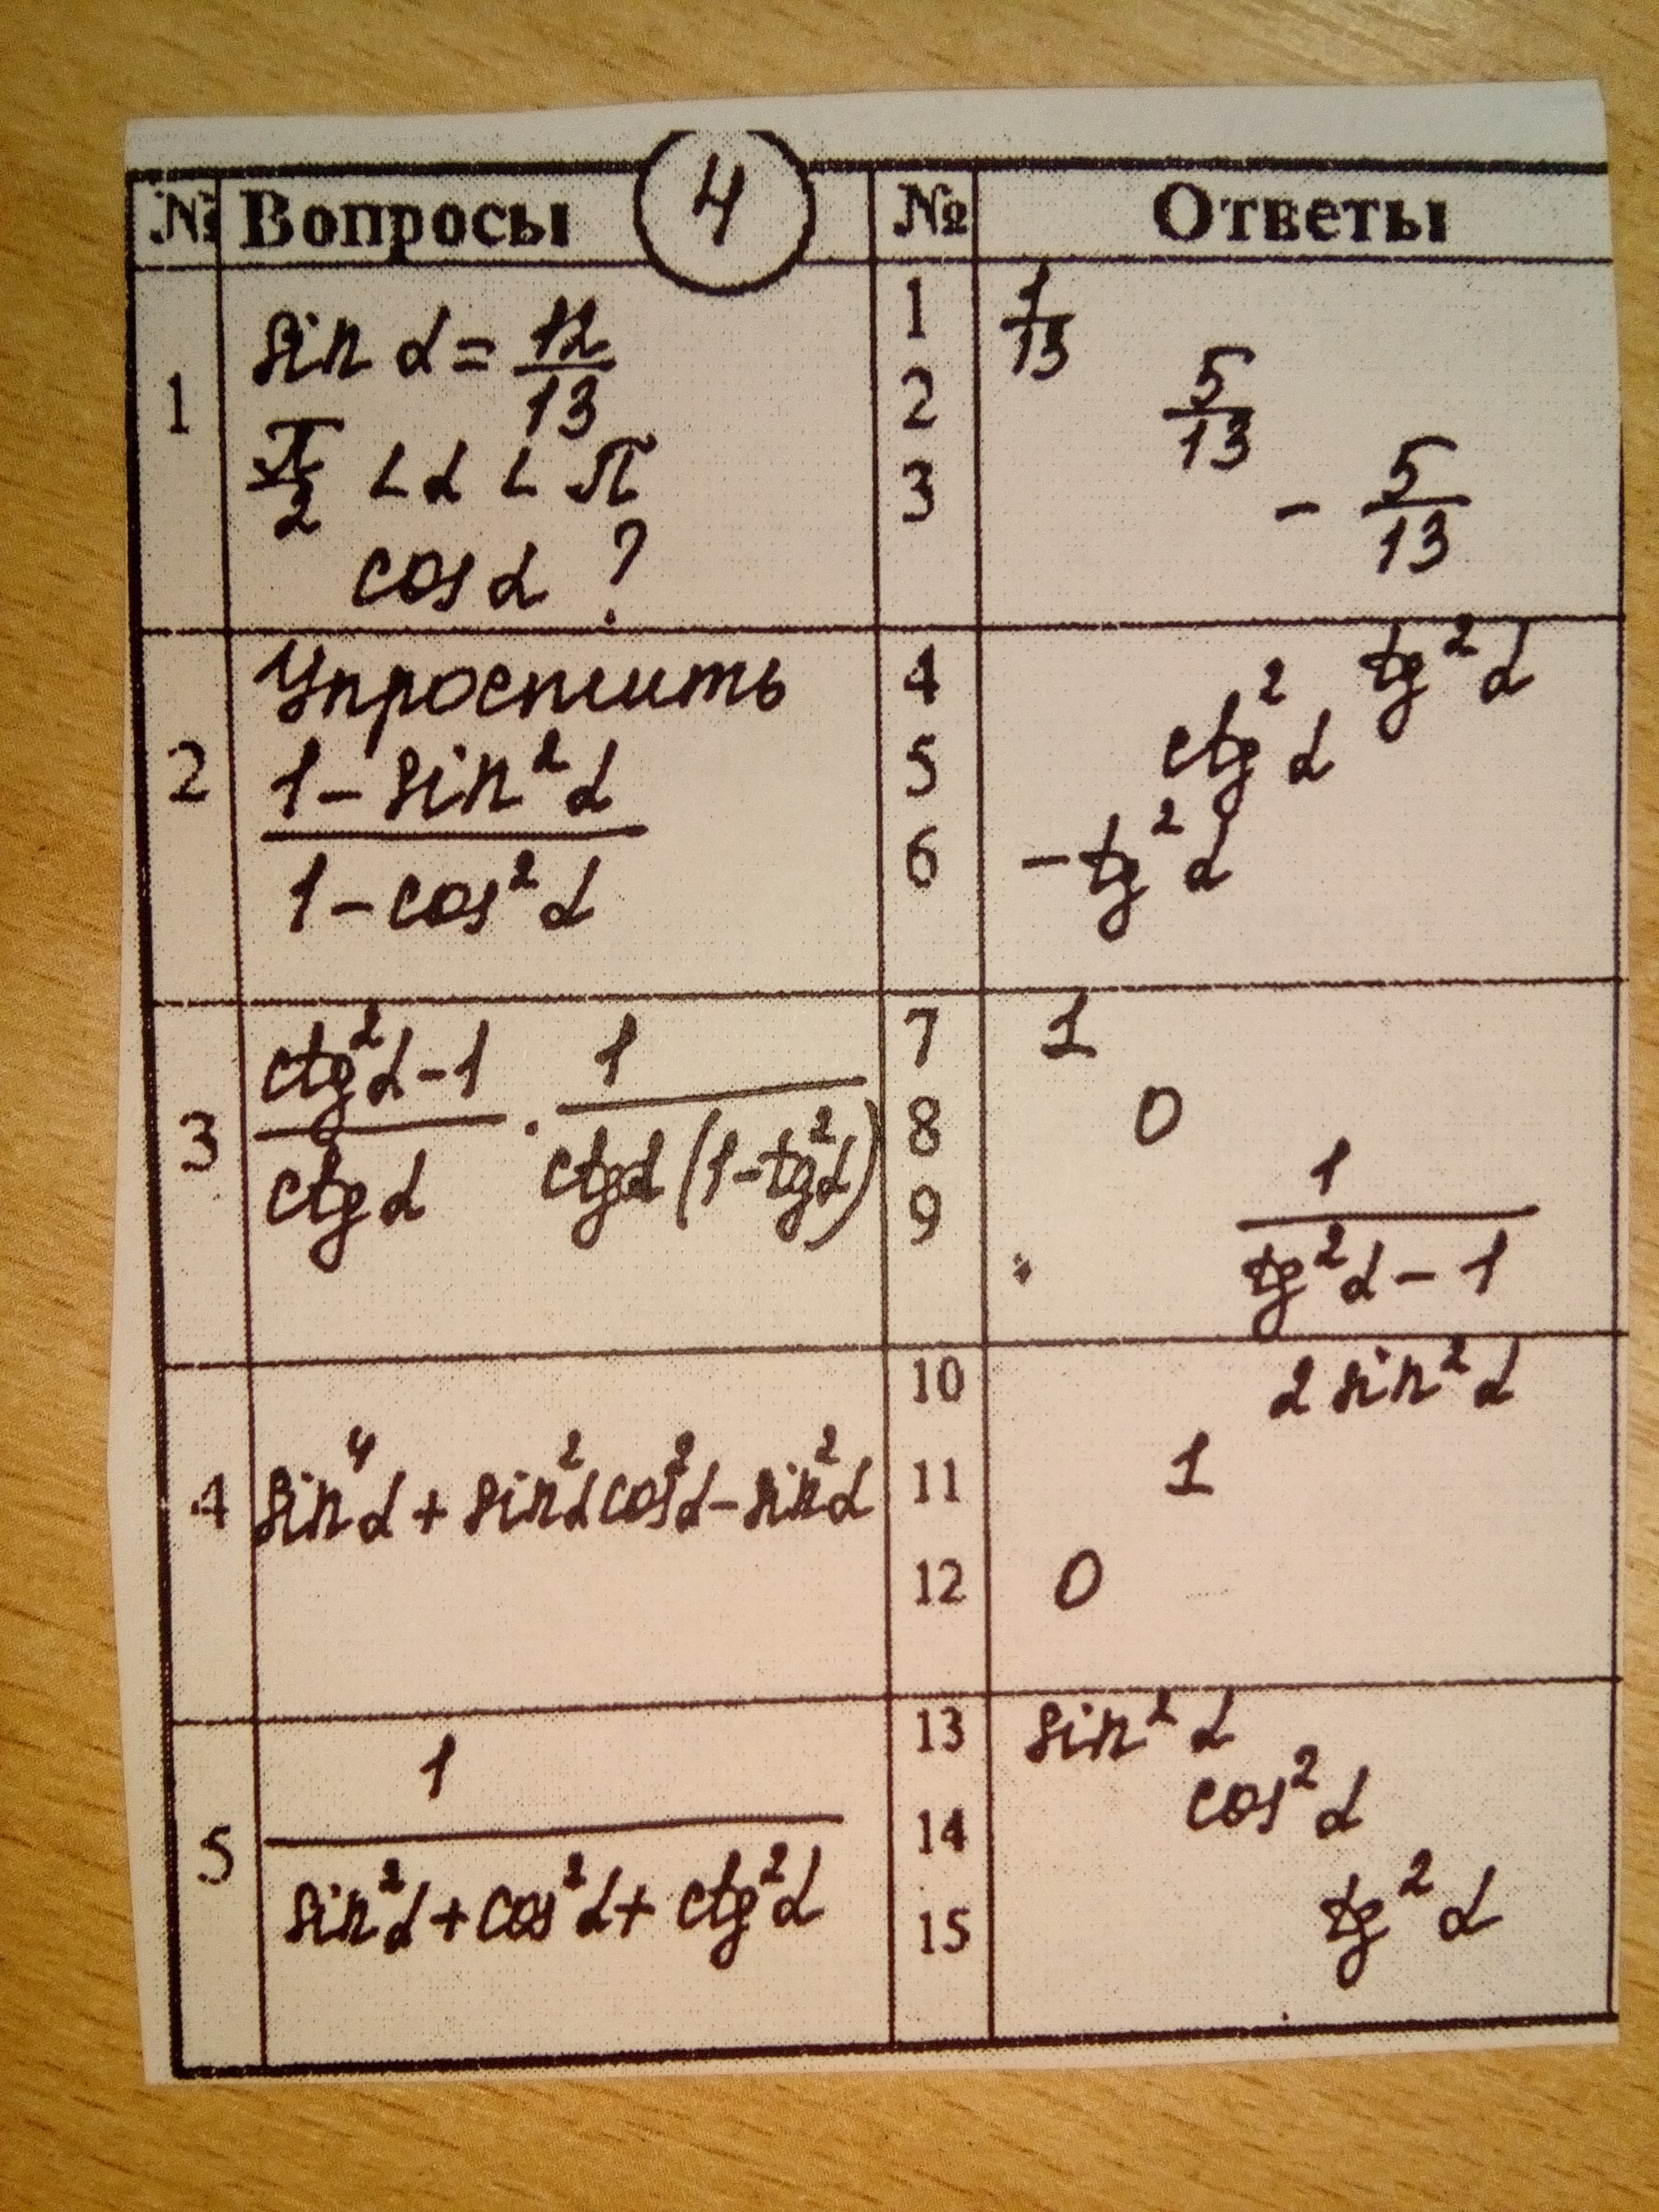 № Вопросы 4 № Ответы
1
sin α = 12/13
π/2 < α < π
cos α ?
1 1/13
2 5/13
3 - 5/13
2
Упростить
1 - sin² α
1 - cos² α
4 tg² α
5 ctg² α
6 - tg² α
3
ctg² α - 1 / ctg α · 1 / ctg α (1 - tg² α)
7 1
8 0
9 1 / tg² α - 1
4
sin⁴ α + sin² α cos² α - sin² α
10 2 sin² α
11 1
12 0
5
1
sin² α + cos² α + ctg² α
13 sin² α
14 cos² α
15 tg² α